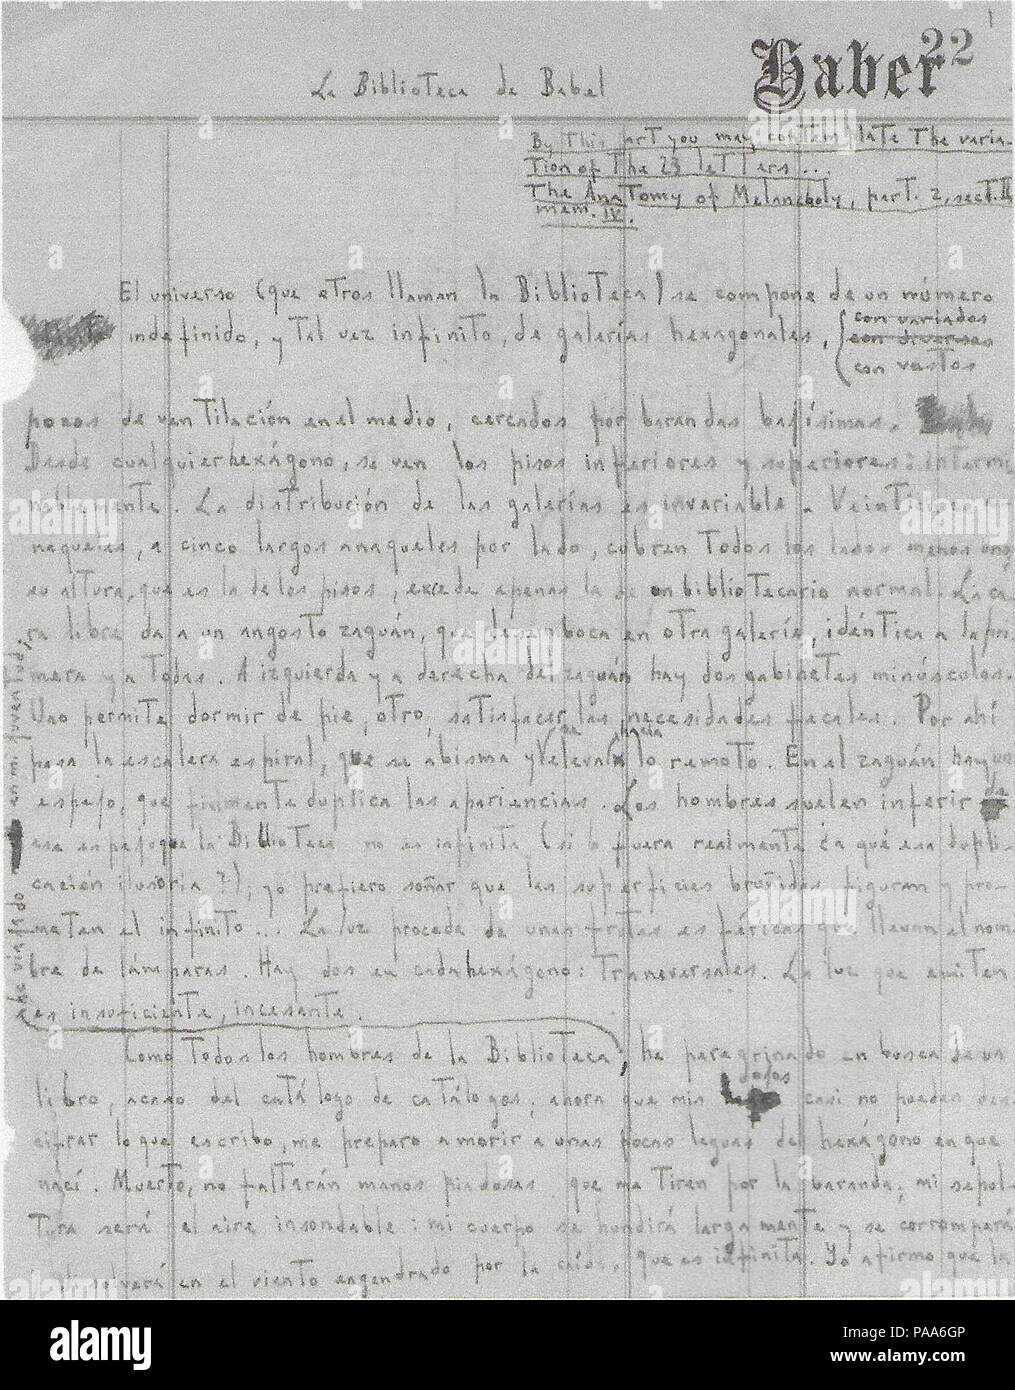 1
Haber 22
La Biblioteca de Babel
By this art you may contemplate the varia-
tion of the 23 letters...
The Anatomy of Melancholy, part. 2, sect. II
mem. IV.
El universo (que otros llaman la Biblioteca) se compone de un número
indefinido, y tal vez infinito, de galerías hexagonales,
con variados
con diversos
con vastos
pozos de ventilación en el medio, cercados por barandas bajísimas.
Desde cualquier hexágono, se ven los pisos inferiores y superiores: intermi
nablemente. La distribución de las galerías es invariable. Veinticinco a-
naqueles, a cinco largos anaqueles por lado, cubren todos los lados menos uno;
su altura, que es la de los pisos, excede apenas la de un bibliotecario normal. La ca-
ra libre da a un angosto zaguán, que desemboca en otra galería, idéntica a la pri-
mera y a todas. A izquierda y a derecha del zaguán hay dos gabinetes minúsculos.
Uno permite dormir de pie; otro, satisfacer las necesidades fecales. Por ahí
se hacia
pasa la escalera espiral, que se abisma y eleva lo remoto. En el zaguán hay un
espejo, que fielmente duplica las apariencias. Los hombres suelen inferir de
ese espejo que la Biblioteca no es infinita (si lo fuera realmente ¿a qué esa dupli-
cación ilusoria?); yo prefiero soñar que las superficies bruñidas figuran y pro-
meten el infinito... La luz procede de unas frutas esféricas que llevan el nom-
bre de lámparas. Hay dos en cada hexágono: transversales. La luz que emiten
es insuficiente, incesante.
he viajado en mi juventud;
Como todos los hombres de la Biblioteca, he peregrinado en busca de un
ojos
libro, acaso del catálogo de catálogos; ahora que mis casi no pueden des-
cifrar lo que escribo, me preparo a morir a unas pocas leguas del hexágono en que
nací. Muerto, no faltarán manos piadosas que me tiren por la baranda; mi sepul-
tura será el aire insondable: mi cuerpo se hundirá largamente y se corromperá
y disolverá en el viento engendrado por la caída, que es infinita. Yo afirmo que la
alamy
alamy
Image ID: PAA6GP
www.alamy.com